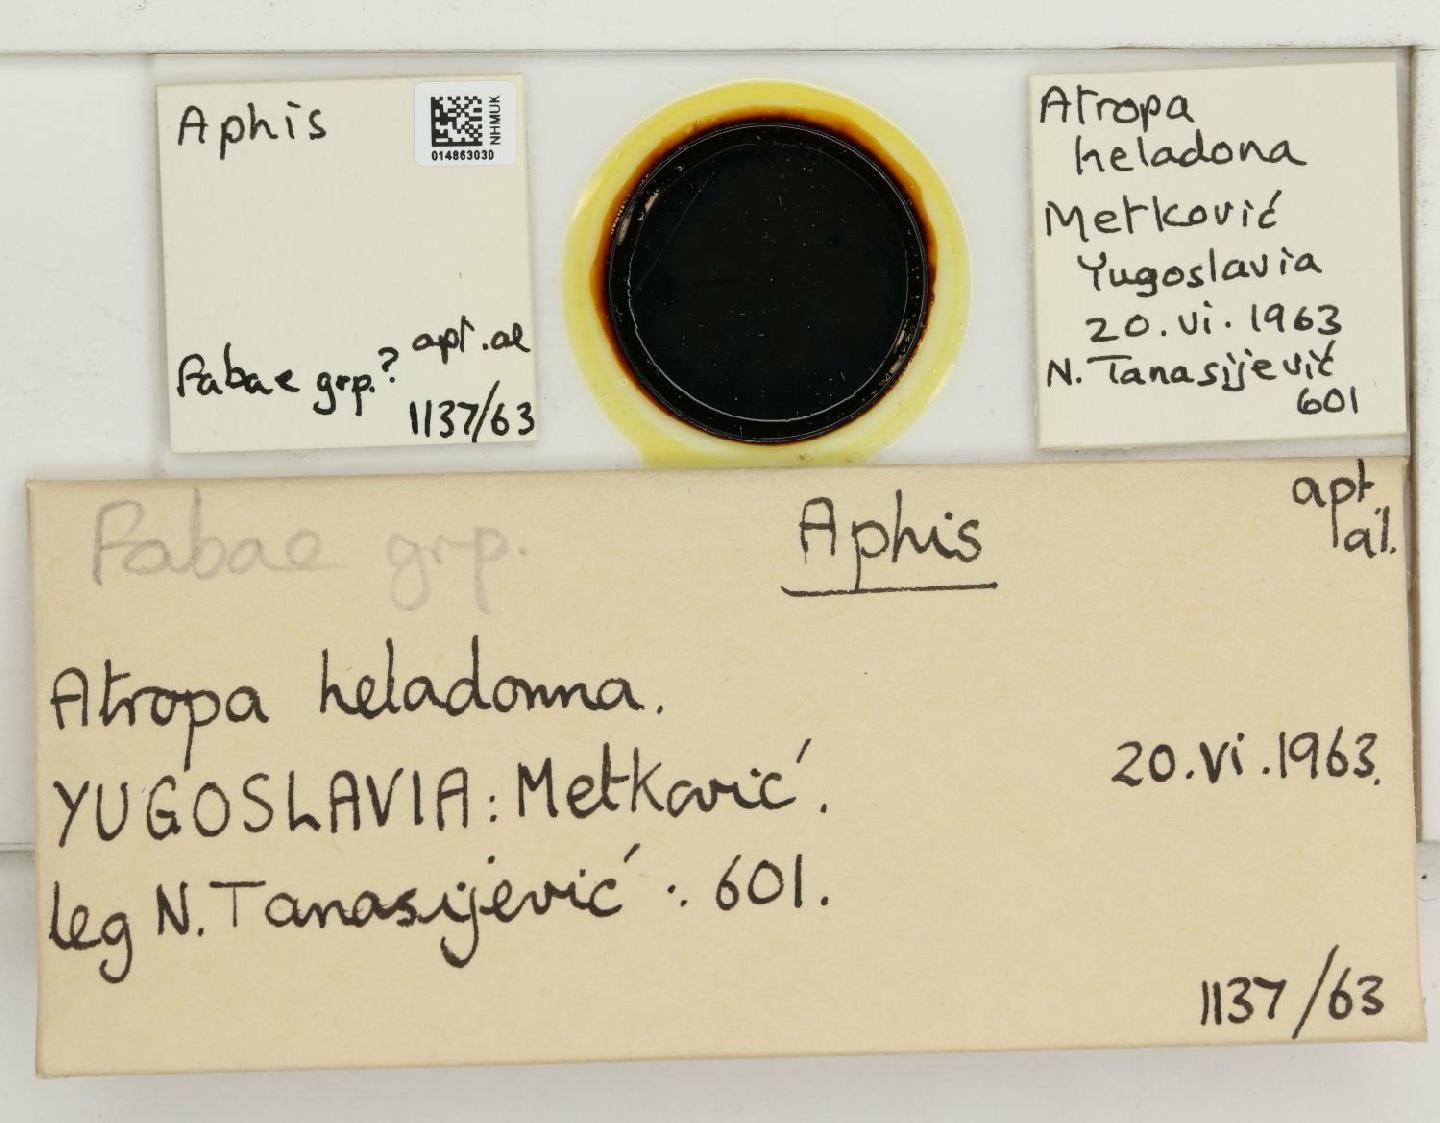 Aphis
NHMUK
014863030
Fabae grp.?
apt. al
1137/63
Atropa
heladona
Metković
Yugoslavia
20.vi.1963
N. Tanasijević
601
Fabae grp.
Aphis
apt
al.
Atropa heladonna.
YUGOSLAVIA: Metković.
20.vi.1963.
leg N. Tanasijević: 601.
1137/63